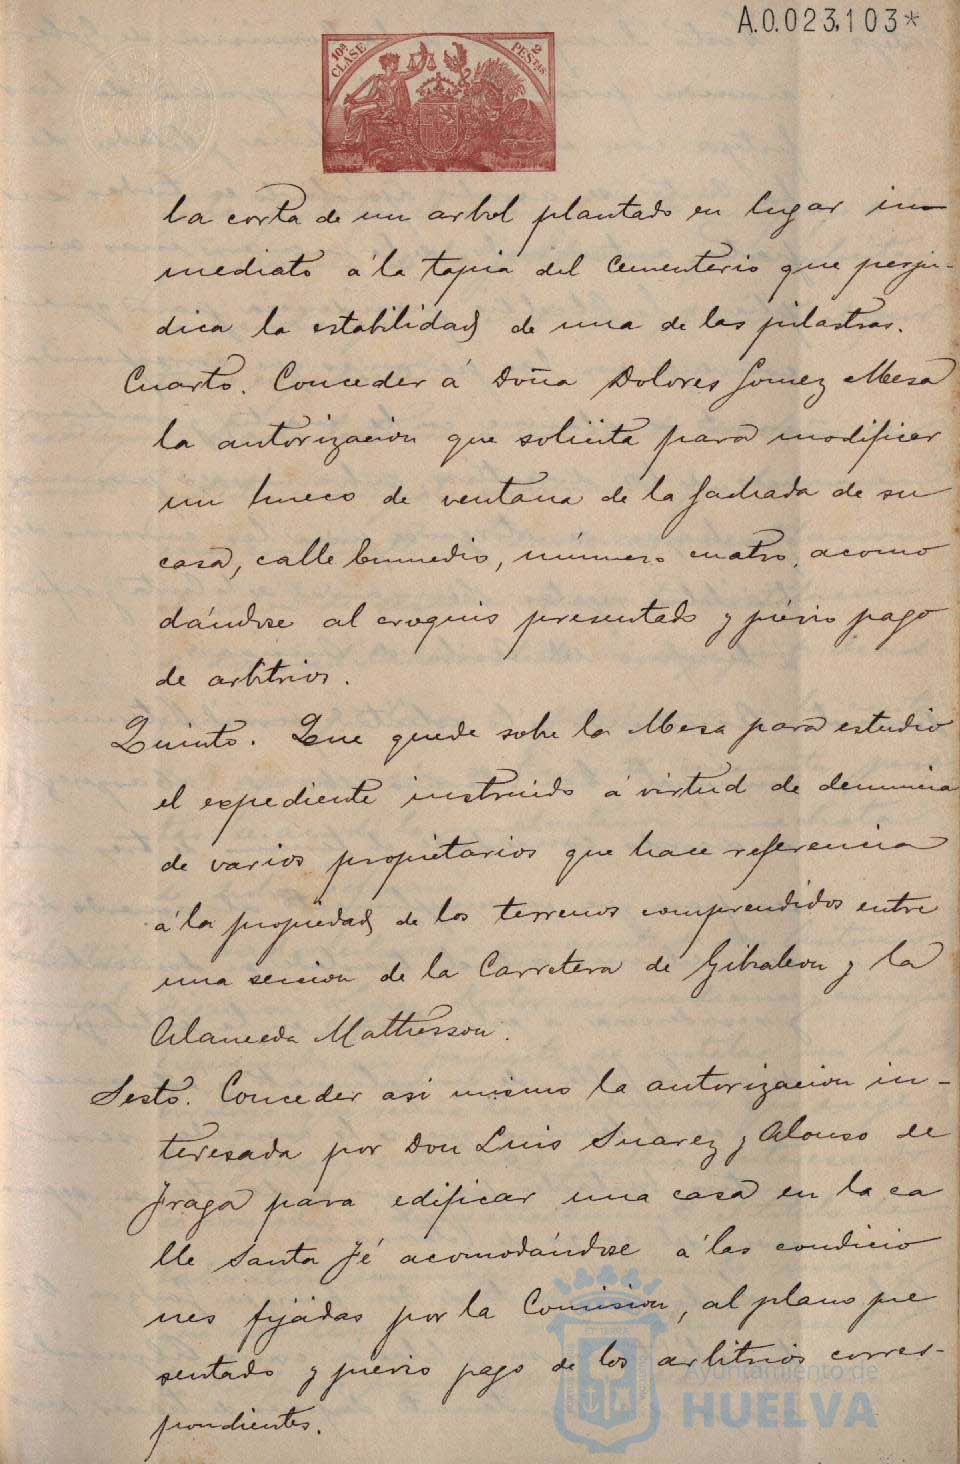 A.0.023,103*
10ª CLASE
2 PESTAS
la corta de un arbol plantado en lugar in-
mediato á la tapia del Cementerio que perju-
dica la estabilidad de una de las pilastras.
Cuarto. Conceder á Doña Dolores Gomez Mesa
la autorizacion que solicita para modificar
un hueco de ventana de la fachada de su
casa, calle Enmedio, número cuatro, acomo
dándose al croquis presentado y prévio pago
de arbitrios.
Quinto. Que quede sobre la Mesa para estudio
el expediente instruido á virtud de denuncia
de varios propietarios que hace referencia
á la propiedad de los terrenos comprendidos entre
una seccion de la Carretera de Gibraleon y la
Alameda Mathesson.
Sesto. Conceder asi mismo la autorizacion in-
teresada por Don Luis Suarez y Alonso de
Fraga para edificar una casa en la ca
lle Santa Fé acomodándose á las condicio
nes fijadas por la Comision, al plano pre
sentado y previo pago de los arbitrios corres-
pondientes.
Ayuntamiento de
HUELVA